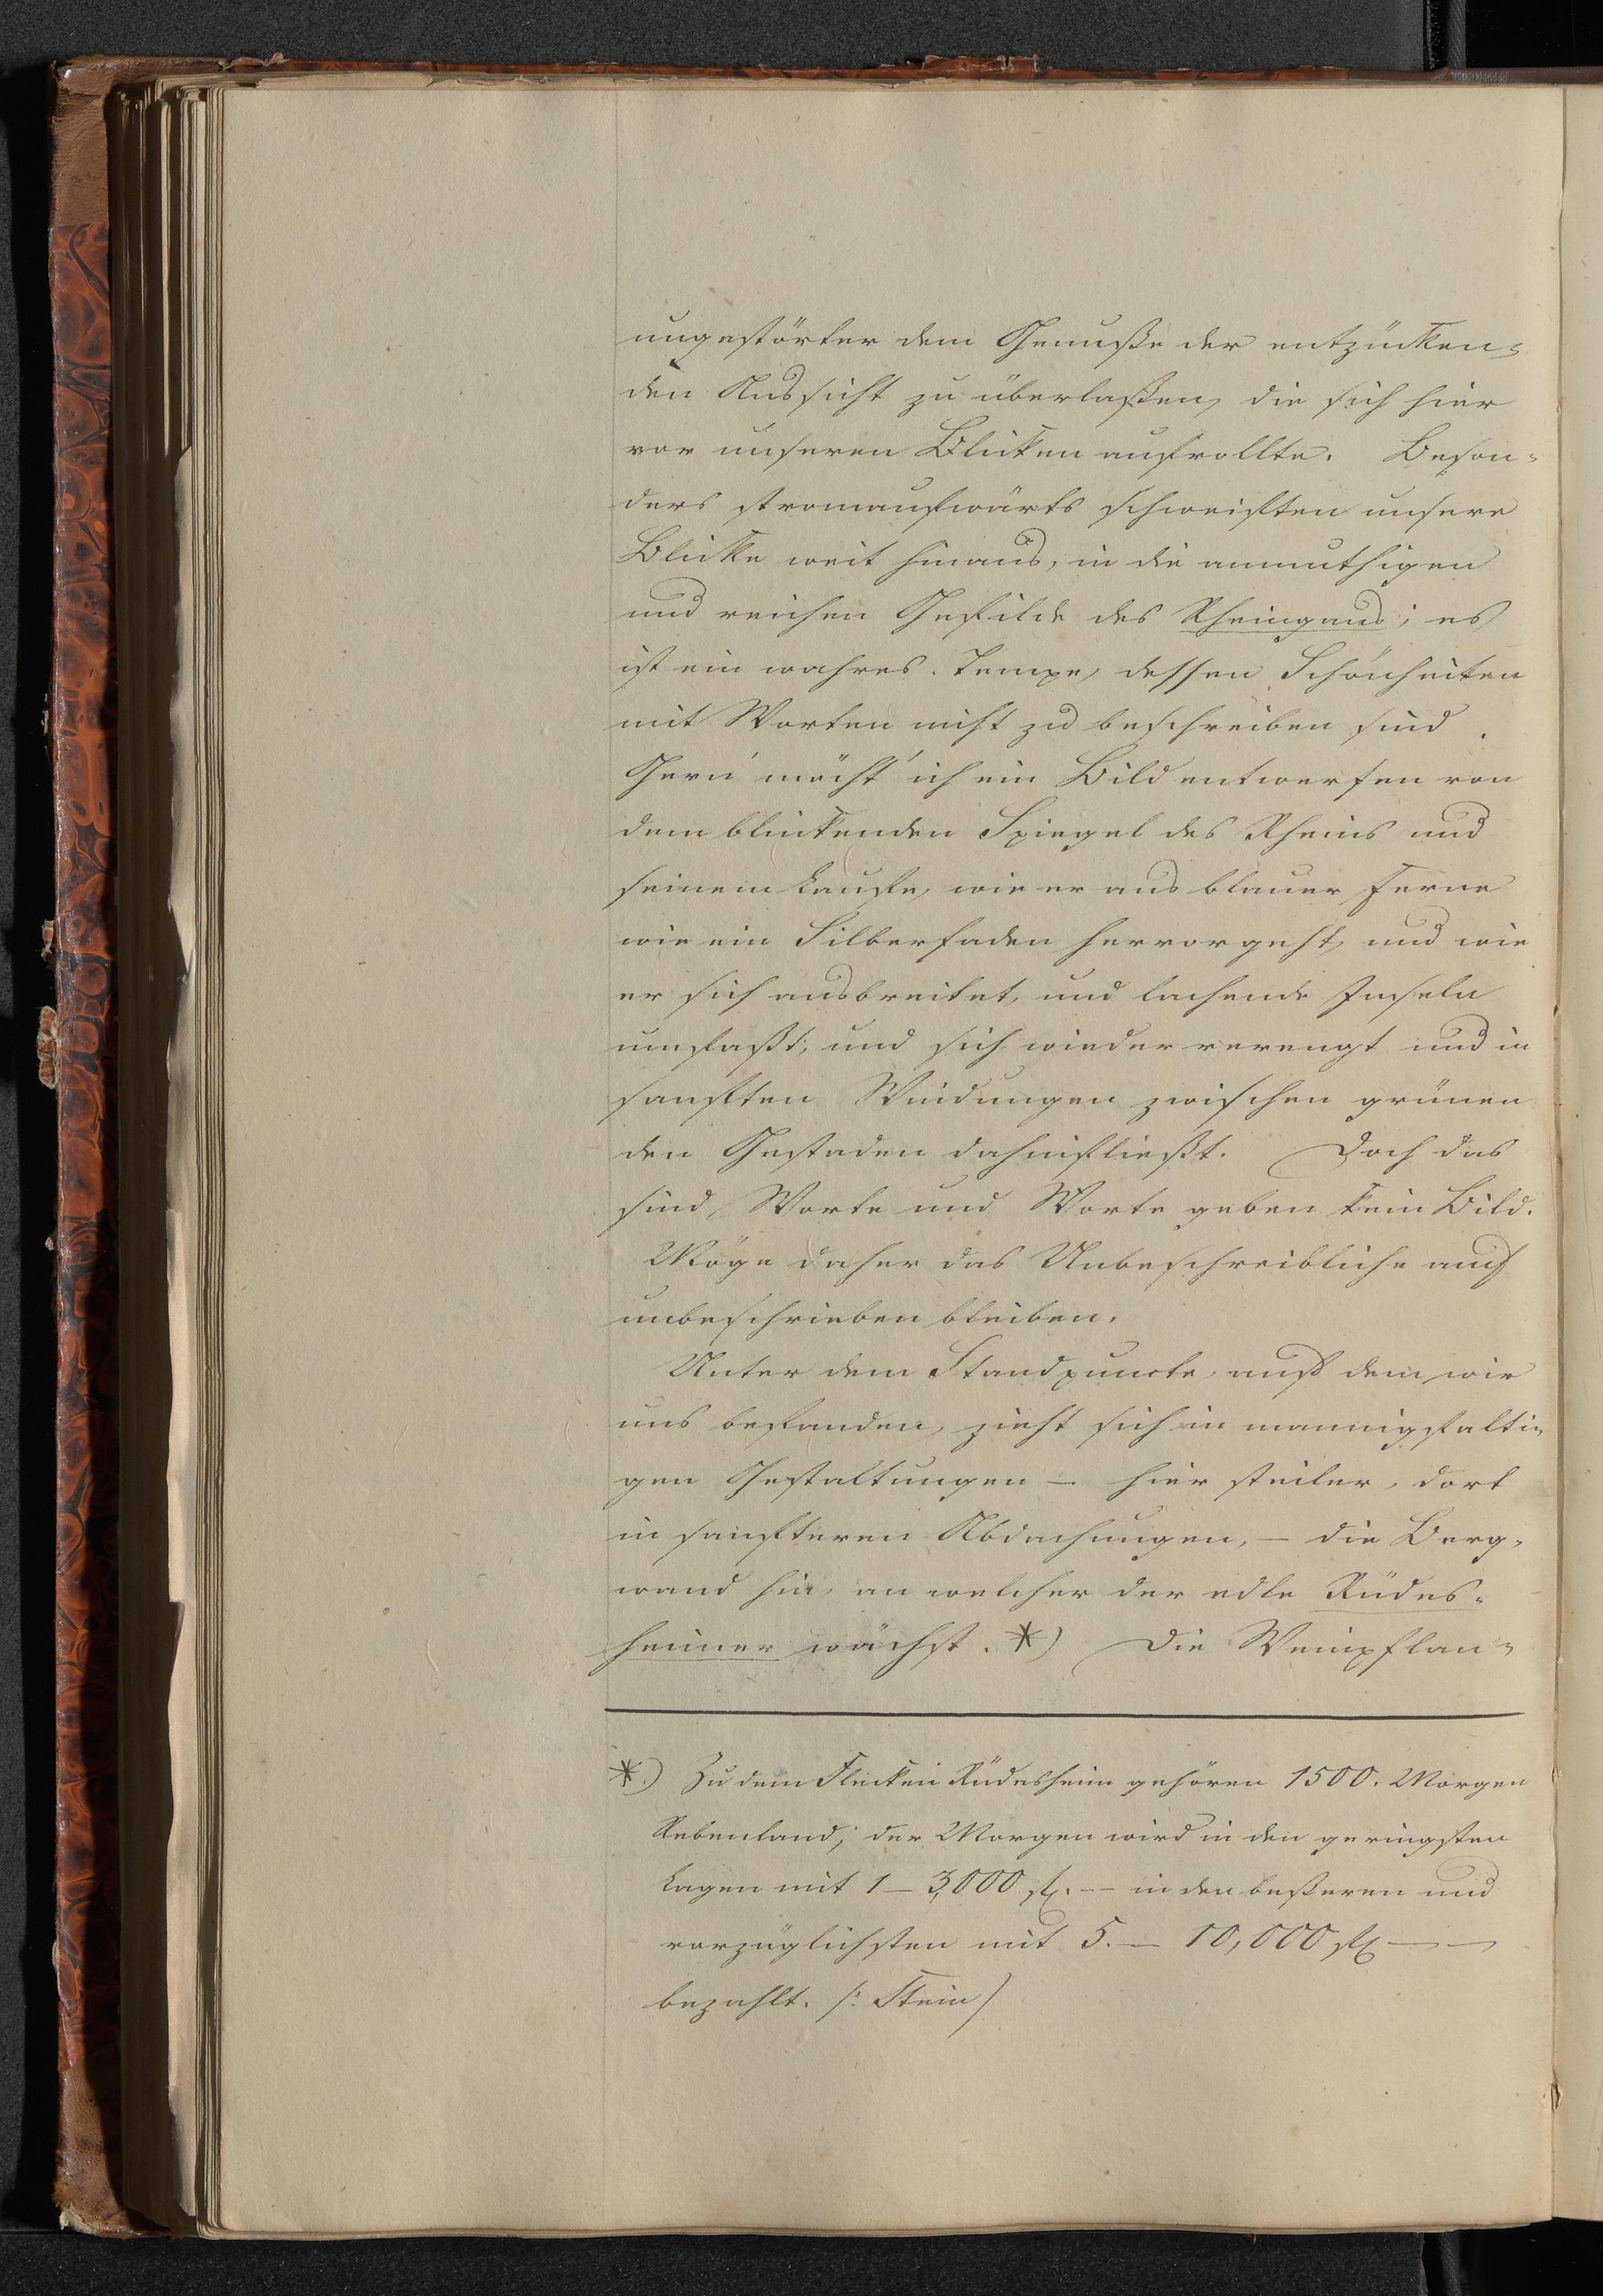 ungestörter dem Genuße der entzücken=
den Aussicht zu überlaßen, die sich hier
vor unseren Blicken aufrollte. Beson=
ders stromaufwärts schweiften unsere
Blicke weit hinaus, in die anmuthigen
und reichen Gefilde des Rheingaus; es
ist ein wahres Tempe, dessen Schönheiten
mit Worten nicht zu beschreiben sind.
Gern' möcht' ich ein Bild entwerfen von
dem blinkenden Spiegel des Rheins und
seinem Laufe, wie er aus blauer Ferne
wie ein Silberfaden hervorgeht, und wie
er sich ausbreitet, und lachende Inseln
umfaßt, und sich wieder verengt und in
sanften Windungen zwischen grünen
den Gestaden dahinfließt. Doch das
sind Worte und Worte geben kein Bild.
Möge daher das Unbeschreibliche auch
unbeschrieben bleiben.
Unter dem Standpuncte, auf dem wir
uns befanden, zieht sich in mannigfalti=
gen Gestaltungen – hier steiler, dort
in sanfteren Abdachungen, – die Berg=
wand hin, an welcher der edle Rüdes=
heimer wächst. *) Die Weinpflan=
*.) Zu dem Flecken Rüdesheim gehören 1500. Morgen
Rebenland; der Morgen wird in den geringsten
Lagen mit 1 – 3,000 fl. – in den beßeren und
vorzüglichsten mit 5. – 10,000 fl – –
bezahlt. /: Stein /